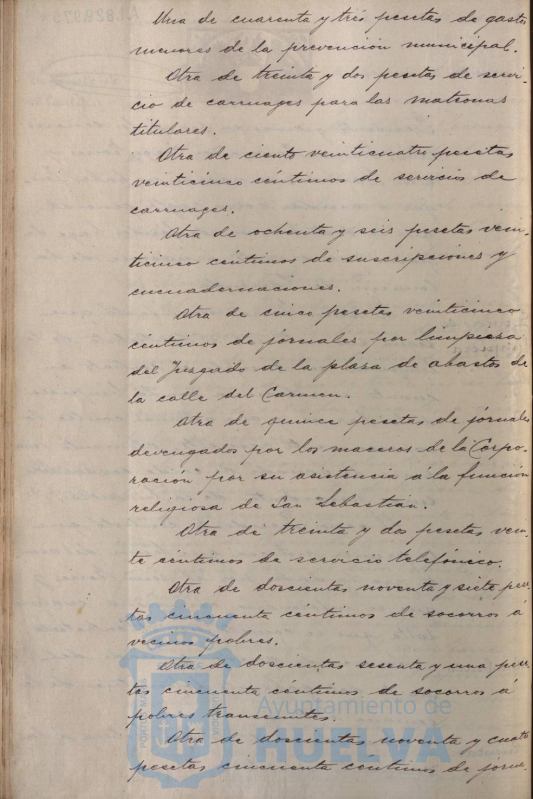 Una de cuarenta y tres pesetas de gastos
menores de la prevención municipal.
Otra de treinta y dos pesetas de servi-
cio de carruages para las matronas
titulares.
Otra de ciento veinticuatro pesetas
veinticinco céntimos de servicios de
carruages.
Otra de ochenta y seis pesetas vein-
ticinco céntimos de suscripciones y
encuadernaciones.
Otra de cinco pesetas veinticinco
céntimos de jornales por limpieza
del Juzgado de la plaza de abastos de
la calle del Carmen.
Otra de quince pesetas de jornales
devengados por los maceros de la Corpo-
ración por su asistencia á la función
religiosa de San Sebastian.
Otra de treinta y dos pesetas vein-
te céntimos de servicio telefónico.
Otra de doscientas noventa y siete pese-
tas cincuenta céntimos de socorros á
vecinos pobres.
Otra de doscientas sesenta y una pese-
tas cincuenta céntimos de socorros á
pobres transeuntes.
Otra de doscientas noventa y cuatro
pesetas cincuenta céntimos de jorna-
Ayuntamiento de
HUELVA